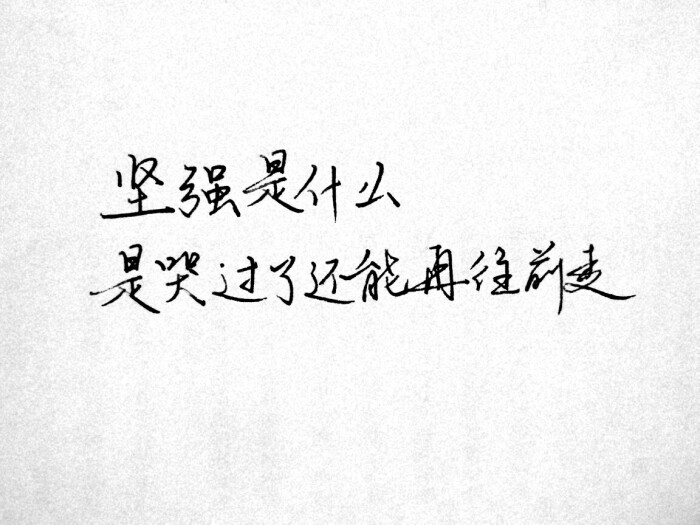 坚强是什么
是哭过了还能再往前走